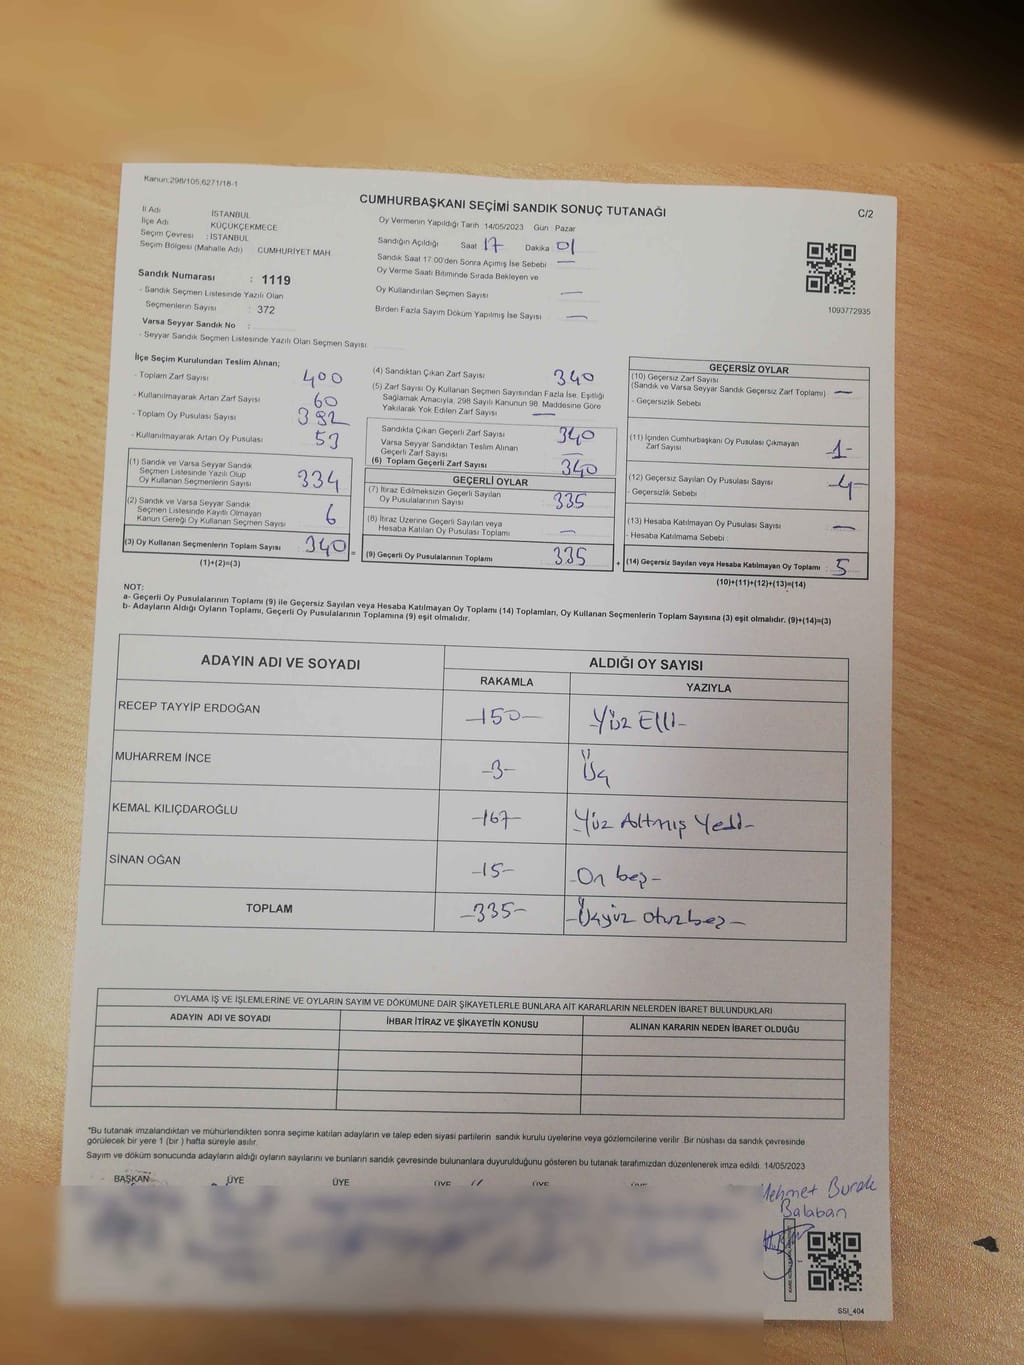 Kanun:298/105,6271/18-1
CUMHURBAŞKANI SEÇİMİ SANDIK SONUÇ TUTANAĞI
C/2
İl Adı İSTANBUL
İlçe Adı KÜÇÜKÇEKMECE
Seçim Çevresi : İSTANBUL
Seçim Bölgesi (Mahalle Adı) CUMHURİYET MAH.
Sandık Numarası : 1119
- Sandık Seçmen Listesinde Yazılı Olan
Seçmenlerin Sayısı : 372
Varsa Seyyar Sandık No :
- Seyyar Sandık Seçmen Listesinde Yazılı Olan Seçmen Sayısı:
Oy Vermenin Yapıldığı Tarih 14/05/2023 Gün Pazar
Sandığın Açıldığı Saat 17 Dakika 01
Sandık Saat 17:00'den Sonra Açımış İse Sebebi —
Oy Verme Saati Bitiminde Sırada Bekleyen ve
Oy Kullandırılan Seçmen Sayısı —
Birden Fazla Sayım Döküm Yapılmış İse Sayısı —
1093772935
İlçe Seçim Kurulundan Teslim Alınan;
- Toplam Zarf Sayısı 400
- Kullanılmayarak Artan Zarf Sayısı 60
- Toplam Oy Pusulası Sayısı 392
- Kullanılmayarak Artan Oy Pusulası 53
(1) Sandık ve Varsa Seyyar Sandık
Seçmen Listesinde Yazılı Olup
Oy Kullanan Seçmenlerin Sayısı 334
(2) Sandık ve Varsa Seyyar Sandık
Seçmen Listesinde Kayıtlı Olmayan
Kanun Gereği Oy Kullanan Seçmen Sayısı 6
(3) Oy Kullanan Seçmenlerin Toplam Sayısı 340 =
(1)+(2)=(3)
(4) Sandıktan Çıkan Zarf Sayısı 340
(5) Zarf Sayısı Oy Kullanan Seçmen Sayısından Fazla İse, Eşitliği
Sağlamak Amacıyla, 298 Sayılı Kanunun 98. Maddesine Göre
Yakılarak Yok Edilen Zarf Sayısı —
Sandıkta Çıkan Geçerli Zarf Sayısı 340
Varsa Seyyar Sandıktan Teslim Alınan
Geçerli Zarf Sayısı —
(6) Toplam Geçerli Zarf Sayısı 340
GEÇERLİ OYLAR
(7) İtiraz Edilmeksizin Geçerli Sayılan
Oy Pusulalarının Sayısı 335
(8) İtiraz Üzerine Geçerli Sayılan veya
Hesaba Katılan Oy Pusulası Toplamı —
(9) Geçerli Oy Pusulalarının Toplamı 335 +
GEÇERSİZ OYLAR
(10) Geçersiz Zarf Sayısı
(Sandık ve Varsa Seyyar Sandık Geçersiz Zarf Toplamı) —
- Geçersizlik Sebebi
(11) İçinden Cumhurbaşkanı Oy Pusulası Çıkmayan
Zarf Sayısı -1-
(12) Geçersiz Sayılan Oy Pusulası Sayısı -4-
- Geçersizlik Sebebi
(13) Hesaba Katılmayan Oy Pusulası Sayısı —
- Hesaba Katılmama Sebebi
(14) Geçersiz Sayılan veya Hesaba Katılmayan Oy Toplamı : 5
(10)+(11)+(12)+(13)=(14)
NOT:
a- Geçerli Oy Pusulalarının Toplamı (9) ile Geçersiz Sayılan veya Hesaba Katılmayan Oy Toplamı (14) Toplamları, Oy Kullanan Seçmenlerin Toplam Sayısına (3) eşit olmalıdır. (9)+(14)=(3)
b- Adayların Aldığı Oyların Toplamı, Geçerli Oy Pusulalarının Toplamına (9) eşit olmalıdır.
ADAYIN ADI VE SOYADI
ALDIĞI OY SAYISI
RAKAMLA YAZIYLA
RECEP TAYYİP ERDOĞAN -150- -Yüz Elli-
MUHARREM İNCE -3- Üç
KEMAL KILIÇDAROĞLU -167- -Yüz Altmış Yedi-
SİNAN OĞAN -15- -On beş-
TOPLAM -335- -Üçyüz otuzbeş-
OYLAMA İŞ VE İŞLEMLERİNE VE OYLARIN SAYIM VE DÖKÜMÜNE DAİR ŞİKAYETLERLE BUNLARA AİT KARARLARIN NELERDEN İBARET BULUNDUKLARI
ADAYIN ADI VE SOYADI İHBAR İTİRAZ VE ŞİKAYETİN KONUSU ALINAN KARARIN NEDEN İBARET OLDUĞU
*Bu tutanak imzalandıktan ve mühürlendikten sonra seçime katılan adayların ve talep eden siyasi partilerin sandık kurulu üyelerine veya gözlemcilerine verilir. Bir nüshası da sandık çevresinde
görülecek bir yere 1 (bir ) hafta süreyle asılır.
Sayım ve döküm sonucunda adayların aldığı oyların sayılarını ve bunların sandık çevresinde bulunanlara duyurulduğunu gösteren bu tutanak tarafımızdan düzenlenerek imza edildi. 14/05/2023
BAŞKAN ÜYE ÜYE ÜYE ÜYE
Mehmet Burak
Balaban
SSI_404